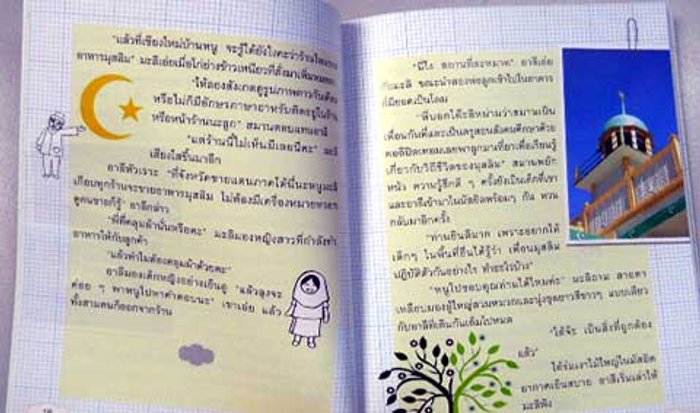 "แล้วที่เชียงใหม่บ้านหนู จะรู้ได้ยังไงคะว่าร้านไหนขาย
อาหารมุสลิม" มะลิเอ่ยเมื่อไก่ย่างข้าวเหนียวที่สั่งมาเพิ่มหมด
"ให้ลองสังเกตดูรูปภาพดาวกับเดือน
หรือไม่ก็มีอักษรภาษาอาหรับติดอยู่ในร้าน
หรือหน้าร้านนะลูก" สมานตอบแทนอาลี
"แต่ร้านนี้ไม่เห็นมีเลยนี่คะ" มะลิ
เสียงใสขึ้นมาอีก
อาลีหัวเราะ "ที่จังหวัดชายแดนภาคใต้นี้นะหนูมะลิ
เกือบทุกร้านจะขายอาหารมุสลิม ไม่ต้องมีเครื่องหมาย
ทุกคนก็รู้" อาลีกล่าว
"พี่ที่คลุมผ้านั่นหรือคะ" มะลิมองหญิงสาวที่กำลังทำ
อาหารให้กับลูกค้า
"แล้วทำไมต้องคลุมผ้าด้วยคะ"
อาลีมองเด็กหญิงอย่างเอ็นดู "แล้วลุงจะ
ค่อย ๆ พาหนูไปหาคำตอบนะ" เขาเอ่ย แล้ว
ทั้งสามคนก็ออกจากร้าน
"นี่ไง สถานที่ละหมาด" อาลีเอ่ย
กับมะลิ ขณะนำสองพ่อลูกเข้าไปในอาคาร
ที่มียอดเป็นโดม
"พี่บอกโต๊ะอิหม่ามว่าสมานเป็น
เพื่อนกับพี่และเป็นครูสอนสังคมศึกษาด้วย
คงลีปิดเทอมเลยพาลูกมาที่ยาเพื่อเรียนรู้
เกี่ยวกับวิถีชีวิตของมุสลิม" สมานพยัก
หน้า ความรู้สึกดี ๆ ครั้งยังเป็นเด็กที่เขา
และอาลีเข้ามาในมัสยิดพร้อมๆ กัน หวน
กลับมาอีกครั้ง
"ท่านยินดีมาก เพราะอยากให้
เด็กๆ ในพื้นที่อื่นได้รู้ว่า เพื่อนมุสลิม
ปฏิบัติตัวกันอย่างไร ทำอะไรบ้าง"
"หนูไปขอบคุณท่านได้ไหมค่ะ" มะลิถาม สายตา
เหลือบมองผู้ใหญ่สวมหมวกและนุ่งชุดยาวสีขาวๆ แบบเดียว
กับอาลีที่เดินกันเต็มไปหมด
"ได้จ้ะ เป็นสิ่งที่ถูกต้อง
แล้ว"
ใต้ร่มเงาไม้ใหญ่ในมัสยิด
อากาศเย็นสบาย อาลีเริ่มเล่าให้
มะลิฟัง